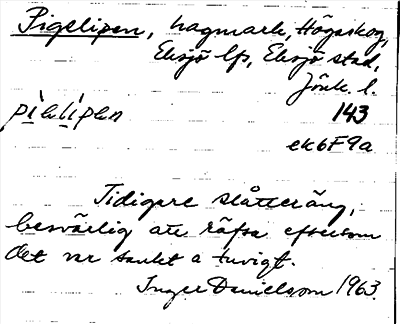 Pigelipen, hagmark, Högaskog,
Eksjö lfs, Eksjö stad,
Jönk. l.
pigəlipən 143
ek6F9a
Tidigare slåtteräng,
besvärlig att räfsa eftersom
det var sankt o tuvigt.
Inger Danielsson 1963.